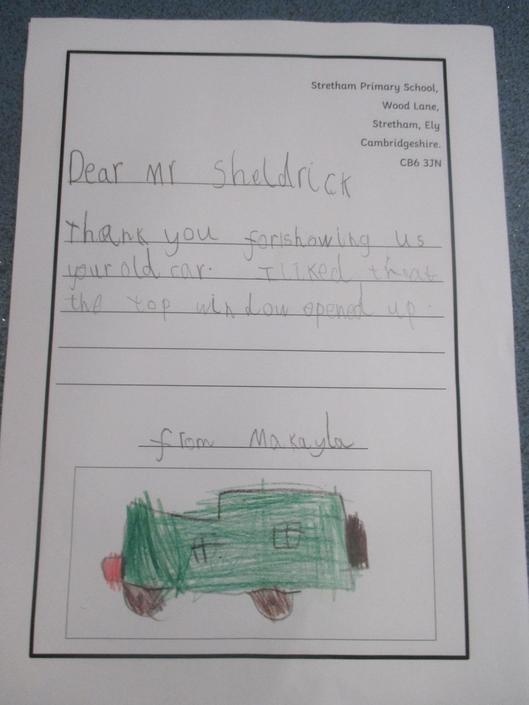 Stretham Primary School,
Wood Lane,
Stretham, Ely
Cambridgeshire.
CB6 3JN
Dear Mr Sheldrick
Thank you for showing us
your old car. I liked that
the top window opened up.
from Makayla